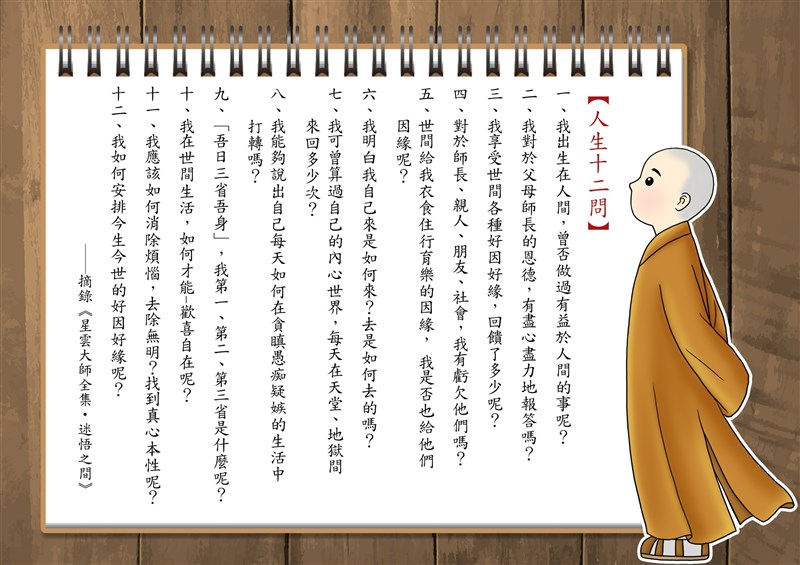 【人生十二問】
一、我出生在人間，曾否做過有益於人間的事呢？
二、我對於父母師長的恩德，有盡心盡力地報答嗎？
三、我享受世間各種好因好緣，回饋了多少呢？
四、對於師長、親人、朋友、社會，我有虧欠他們嗎？
五、世間給我衣食住行育樂的因緣，我是否也給他們
因緣呢？
六、我明白我自己來是如何來？去是如何去的嗎？
七、我可曾算過自己的內心世界，每天在天堂、地獄間
來回多少次？
八、我能夠說出自己每天如何在貪瞋愚痴疑嫉的生活中
打轉嗎？
九、「吾日三省吾身」，我第一、第二、第三省是什麼呢？
十、我在世間生活，如何才能-歡喜自在呢？
十一、我應該如何消除煩惱，去除無明？找到真心本性呢？
十二、我如何安排今生今世的好因好緣呢？
——摘錄《星雲大師全集•迷悟之間》